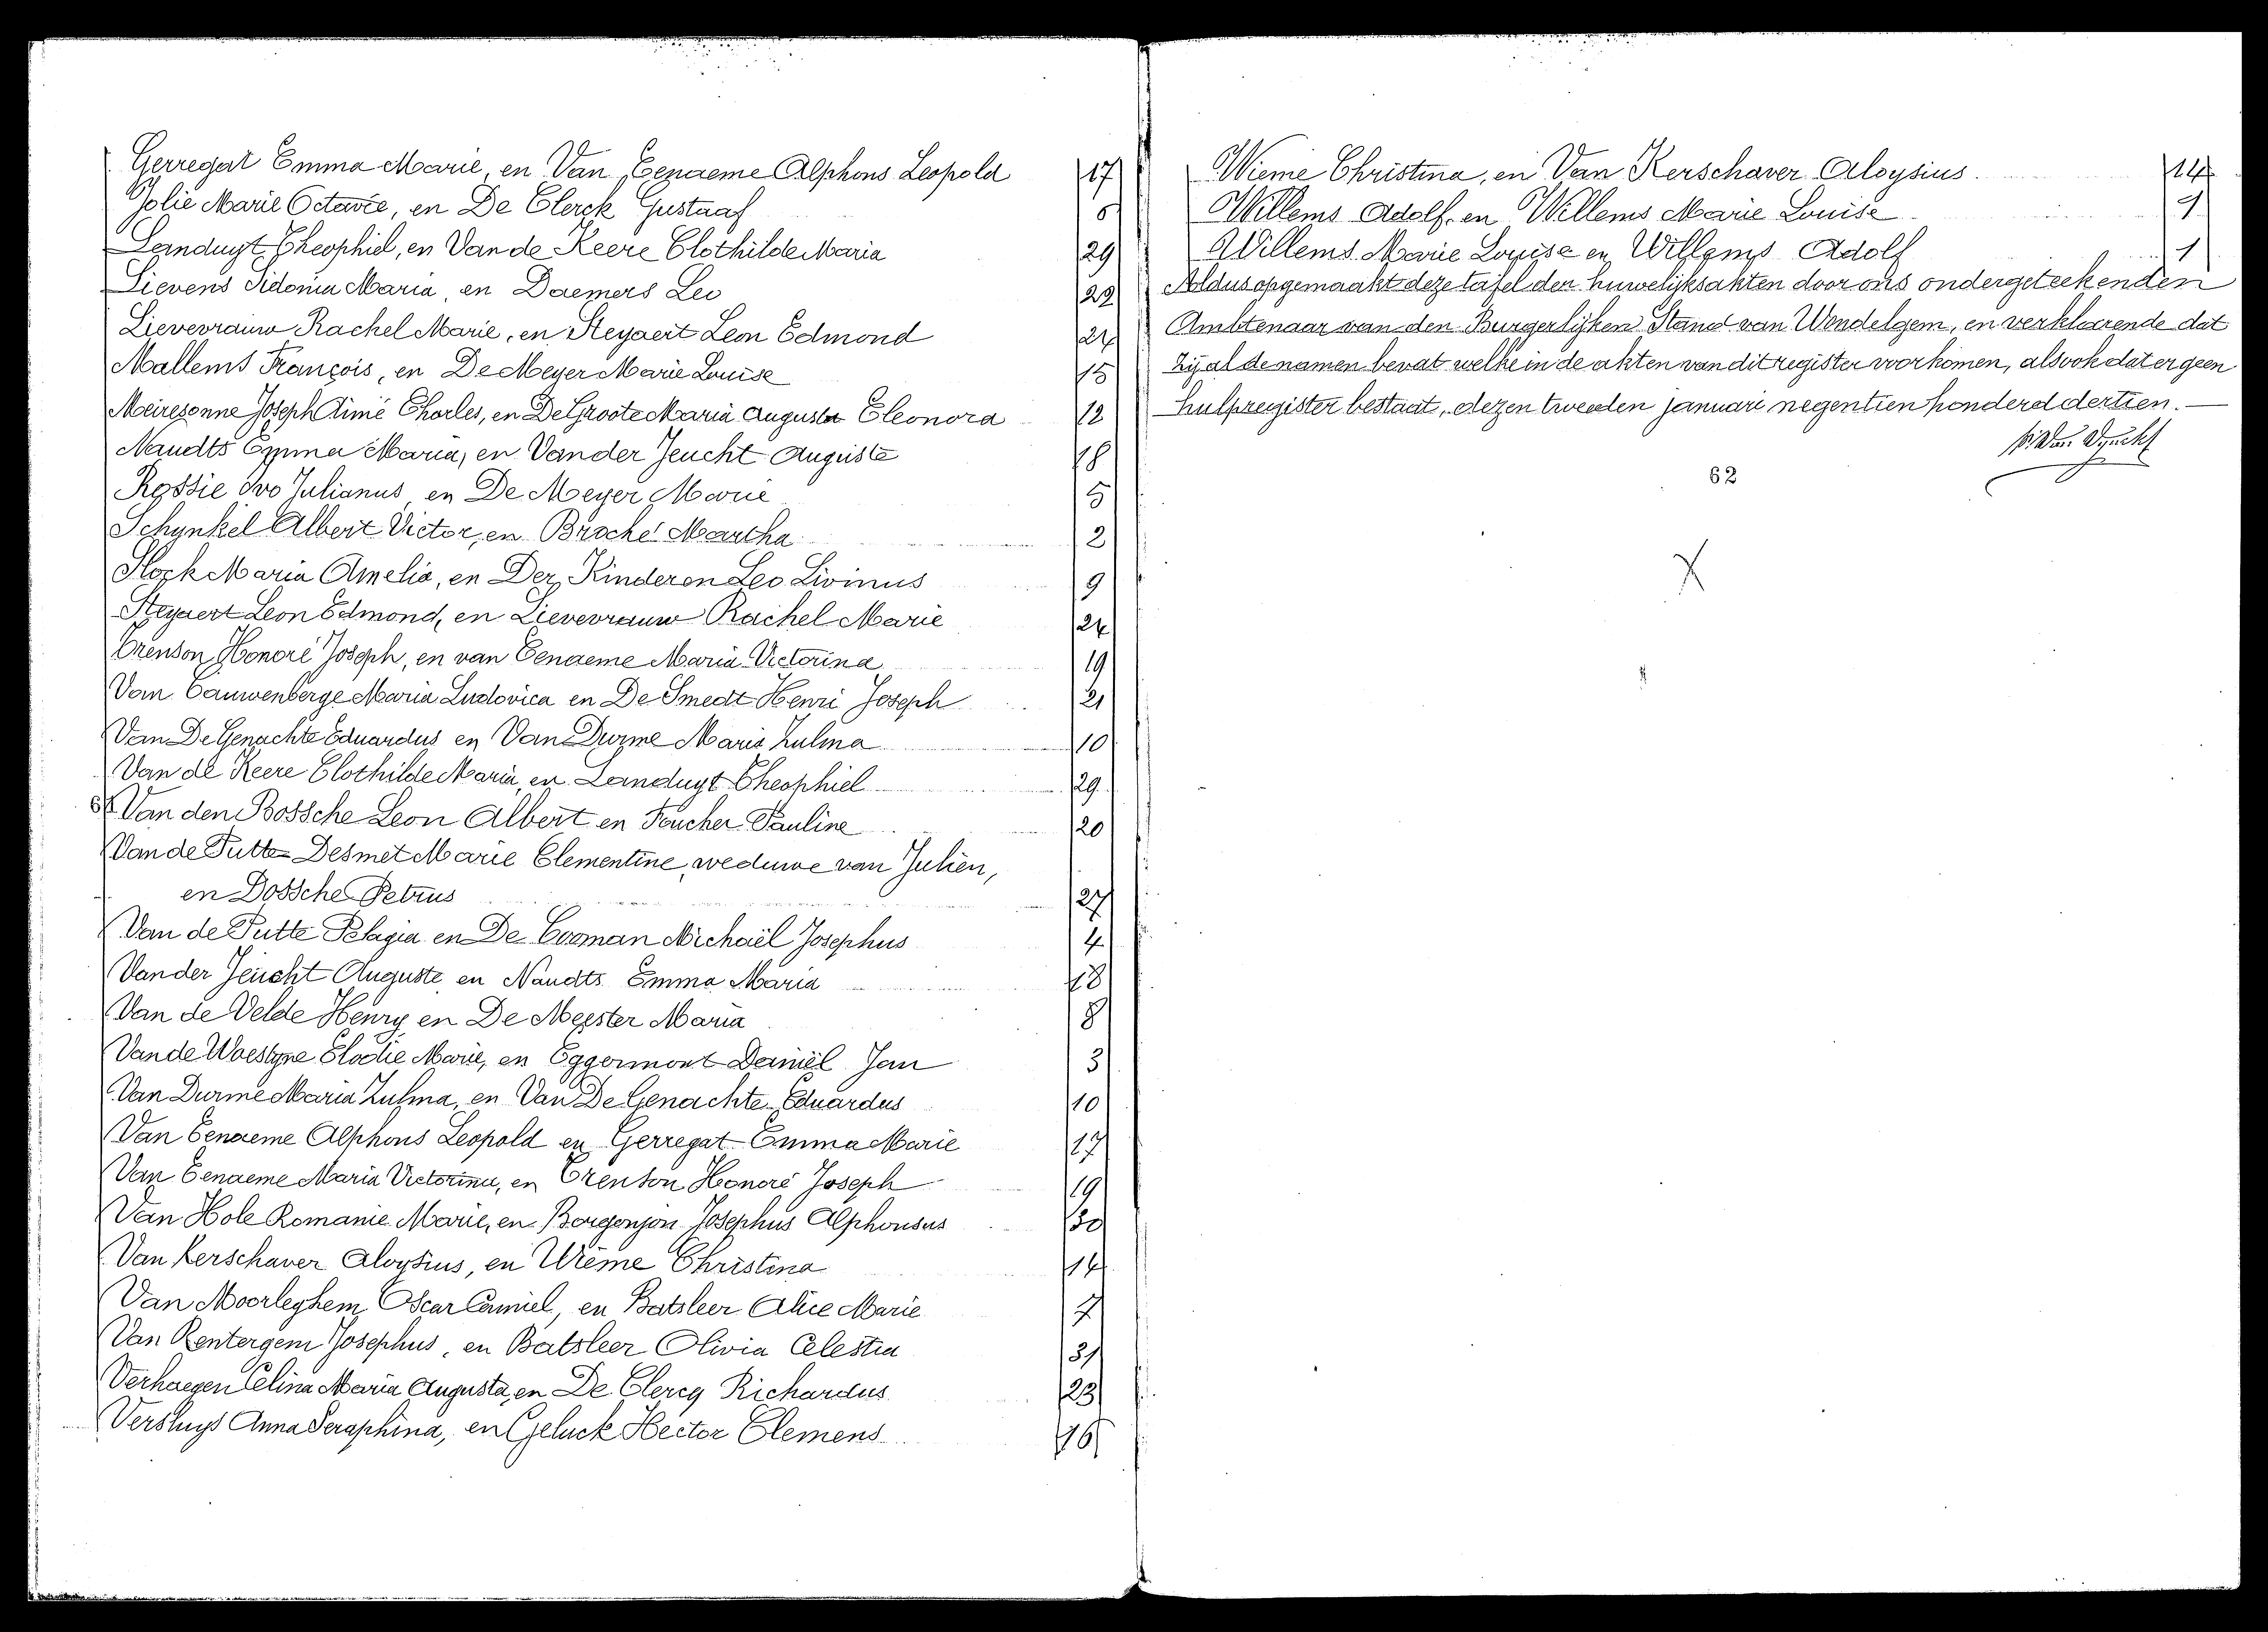 Gerregat Emma Marie, en Van Eenaeme Alphons Leopold 17
Jolie Marie Octavie, en De Clerck Gustaaf 6
Landuyt Theophiel, en Van de Keere Clothilde Maria 29
Lievens Sidonia Maria, en Daemers Leo 22
Lievevrauw Rachel Marie, en Steyaert Leon Edmond 24
Mallems François, en De Meyer Marie Louise 15
Meiresonne Joseph Aimé Charles, en De Groote Maria Augusta Eleonora 12
Naudts Emma Maria, en Vander Jeucht Auguste 18
Rossie Ivo Julianus en De Meyer Marie 5
Schynkel Albert Victor, en Broche Martha 2
Slock Maria Amelia, en Der Kinderen Leo Livinus 9
Steyaert Leon Edmond, en Lievevrauw Rachel Marie 24
Trenson Honoré Joseph, en van Eenaeme Maria Victorina 19
Van Cauwenberge Maria Ludovica en De Smedt Henri Joseph 21
Van De Genachte Eduardus en Van Durme Maria Zulma 10
Van de Keere Clothilde Maria, en Landuyt Theophiel 29
Van den Bossche Leon Albert en Foucher Pauline 20
Van de Putte Desmet Marie Clementine, weduwe van Julien,
en Dossche Petrus 27
Van de Putte Pelagia en De Cooman Michaël Josephus 4
Vander Jeucht Auguste en Naudts Emma Maria 18
Van de Velde Henry en De Meester Maria 8
Vande Woestyne Elodie Marie, en Eggermont Daniël Jan 3
Van Durme Maria Zulma, en Van De Genachte Eduardus 10
Van Eenaeme Alphons Leopold en Gerregat Emma Marie 17
Van Eenaeme Maria Victorina, en Trenson Honoré Joseph 19
Van Hole Romanie Marie, en Borgonjon Josephus Alphonsus 30
Van Kerschaver Aloysius, en Wieme Christina 14
Van Moorleghem Oscar Camiel, en Batsleer Alice Marie 7
Van Rentergem Josephus, en Batsleer Olivia Celestia 31
Verhaegen Celina Maria Augusta, en De Clercq Richardus 23
Versluys Anna Seraphina, en Geluck Hector Clemens 16
Wieme Christina, en Van Kerschaver Aloysius. 14
Willems Adolf, en Willems Marie Louise 1
Willems Marie Louise en Willems Adolf 1
Aldus opgemaakt deze tafel der huwelijksakten door ons ondergeteekenden
Ambtenaar van den Burgerlijken Stand van Wondelgem, en verklarende dat
zij al de namen bevat welke in de akten van dit register voorkomen, alsook dat er geen
hulpregister bestaat, dezen tweeden januari negentien honderd dertien.
62